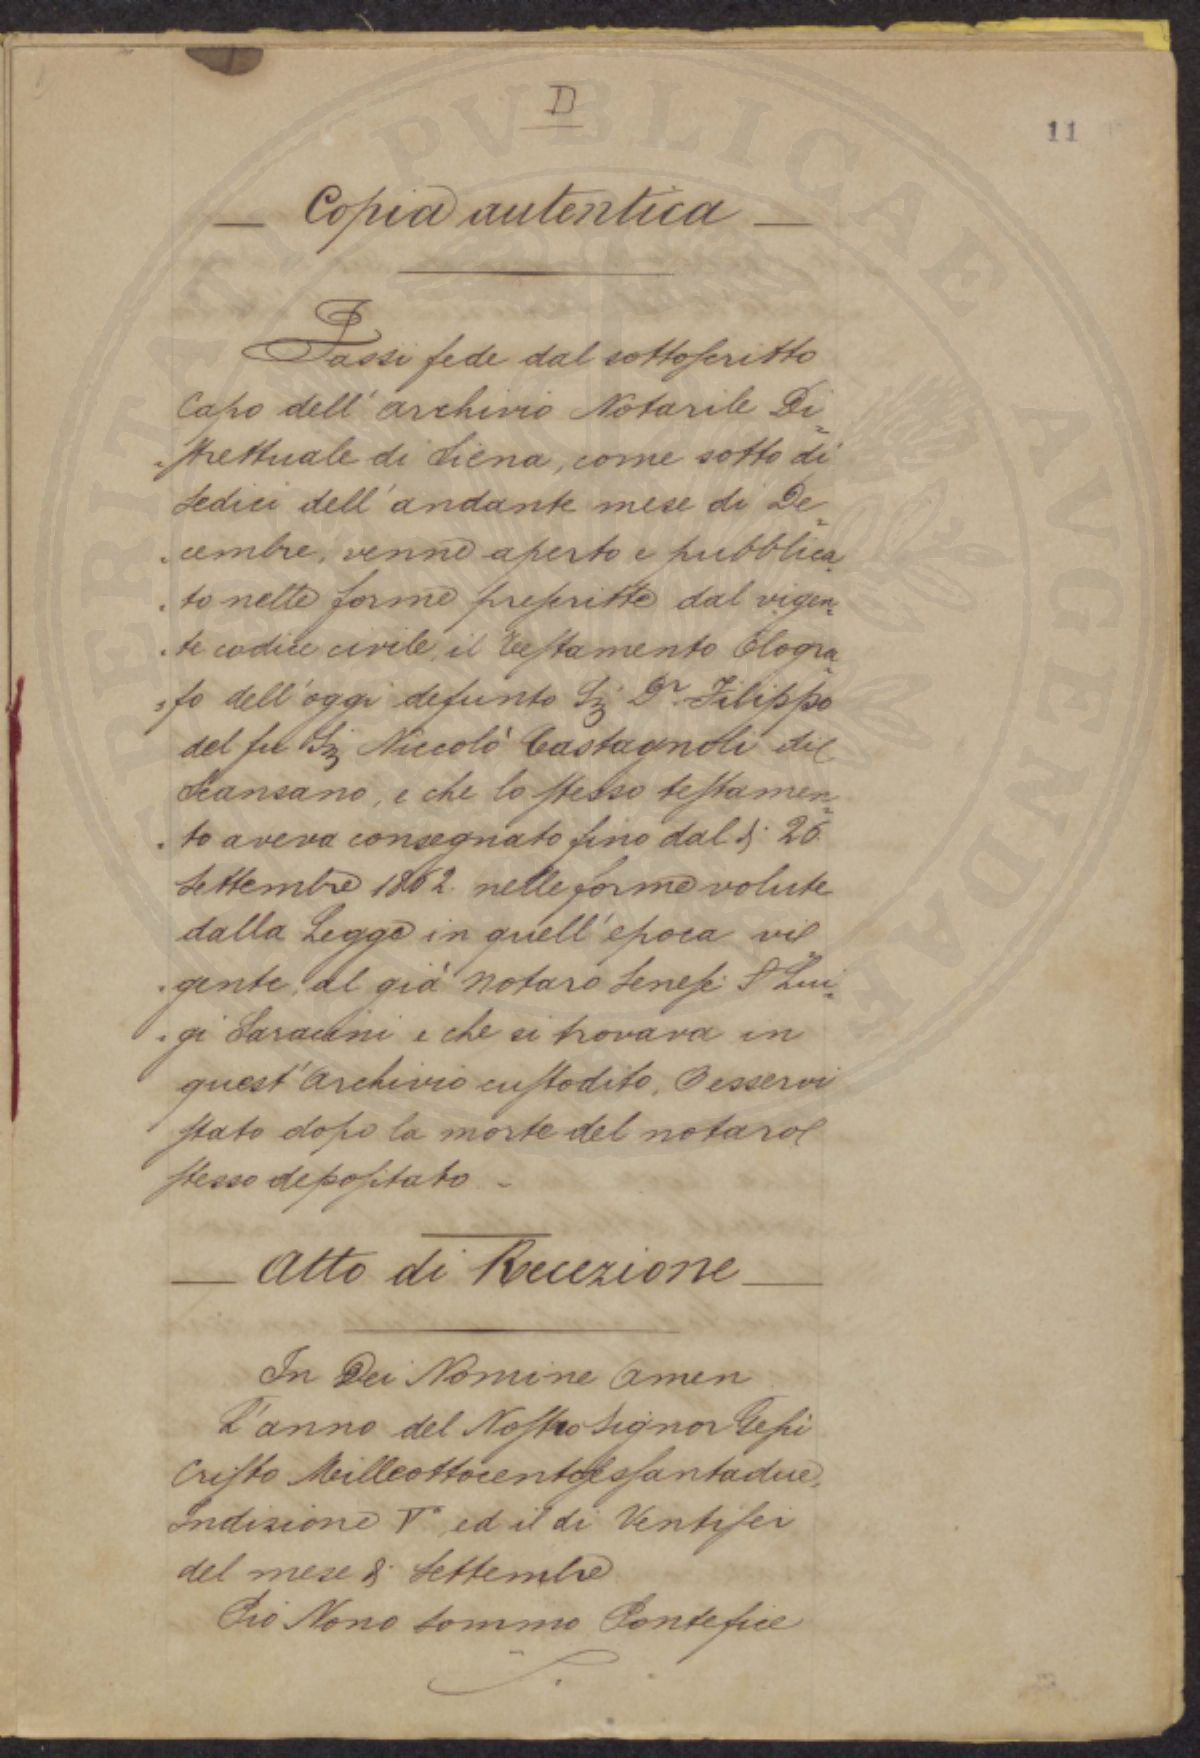 D
11
— Copia autentica —
Fassi fede dal sottoscritto
Capo dell'archivio Notarile Di=
=strettuale di Siena, come sotto dì
sedici dell'andante mese di De=
=cembre, venne aperto e pubblica=
=to nelle forme prescritte dal vigen=
=te codice civile, il testamento Ologra=
=fo dell'oggi defunto Sig. Dr. Filippo
del fu Sig. Niccolò Castagnoli di
Scansano, e che lo stesso testamen=
=to aveva consegnato fino dal dì 26.
Settembre 1862. nelle forme volute
dalla Legge in quell'epoca vi=
=gente, al già notaro Senese S. Lui=
=gi Saracini e che si trovava in
quest'Archivio custodito, O esservi
stato dopo la morte del notaro
stesso depositato -
— Atto di Recezione —
In Dei Nomine Amen
L'anno del Nostro Signor Gesù
Cristo Milleottocentosessantadue,
Indizione Vª ed il dì Ventisei
del mese di Settembre
Pio Nono Sommo Pontefice
PERITATI PVBLICAE AVGENDAE